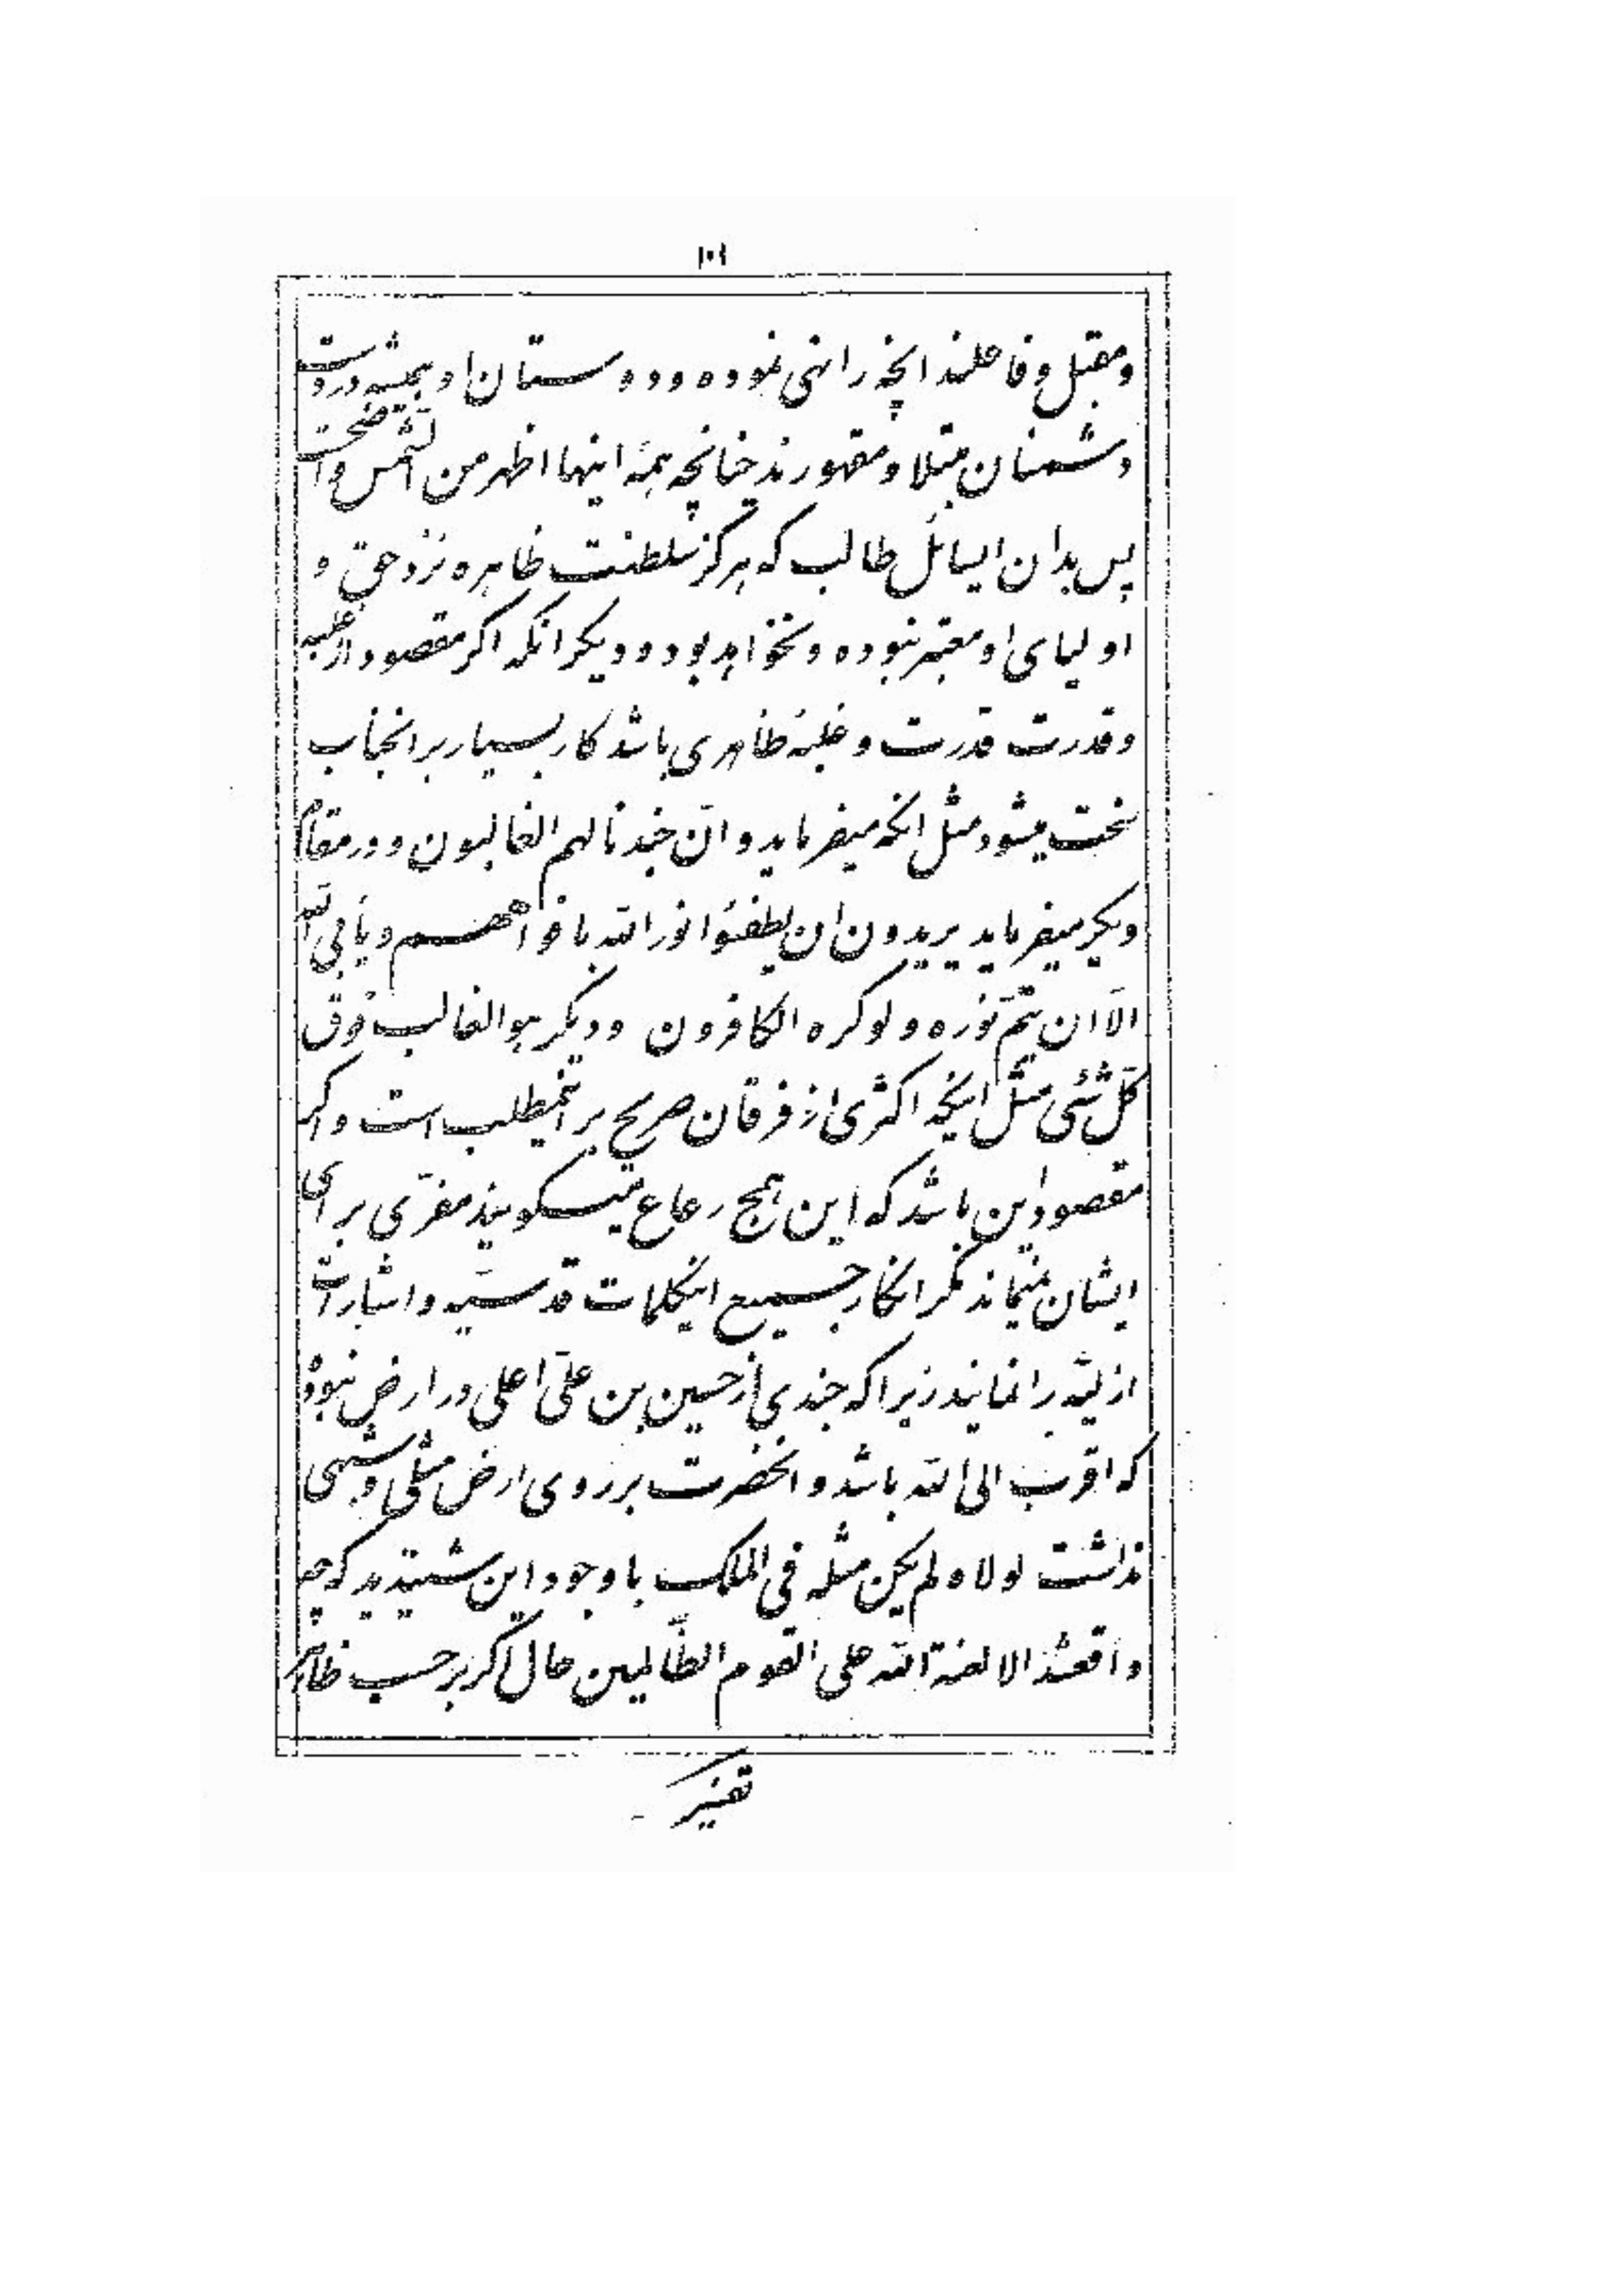 ١٠١
و مقبل و فاعلند انچه را نهی نموده و دوستان او همیشه در دست
دشمنان مبتلا و مقهورند چنانچه همهٔ اینها اظهر من الشمس و اضحت
پس بدان ایسائل طالب که هرگز سلطنت ظاهره نزد حق و
اولیای او معتبر نبوده و نخواهد بود و دیگر انکه اکر مقصود از غلبه
و قدرت قدرت و غلبهٔ ظاهری باشد کار بسیار بر انجناب
سخت میشود مثل انکه میفرماید و انّ جندنا لهم الغالبون و در مقام
دیکر میفرماید یریدون ان یطفئوا نور اللّه بافواههم و یأبی اللّه
الّا ان یتمّ نوره و لو کره الکافرون و دیکر هو الغالب فوق
کلّ شئی مثل اینکه اکثری از فرقان صریح بر اینمطلب است و اکر
مقصود این باشد که این همج رعاع میکویند مفرّی برای
ایشان نمیماند مکر انکار جمیع اینکلمات قدسیّه و اشارات
ازلیّه را نمایند زیرا که جندی از حسین بن علیّ اعلی در ارض نبوده
که اقرب الی اللّه باشد و انحضرت بر روی ارض مثلی و شبهی
نداشت لولاه لم یکن مثله فی الملک با وجود این شنیدید که چه
واقع شد الا لعنة اللّه علی القوم الظّالمین حال اکر بر حسب ظاهر
تفسیر